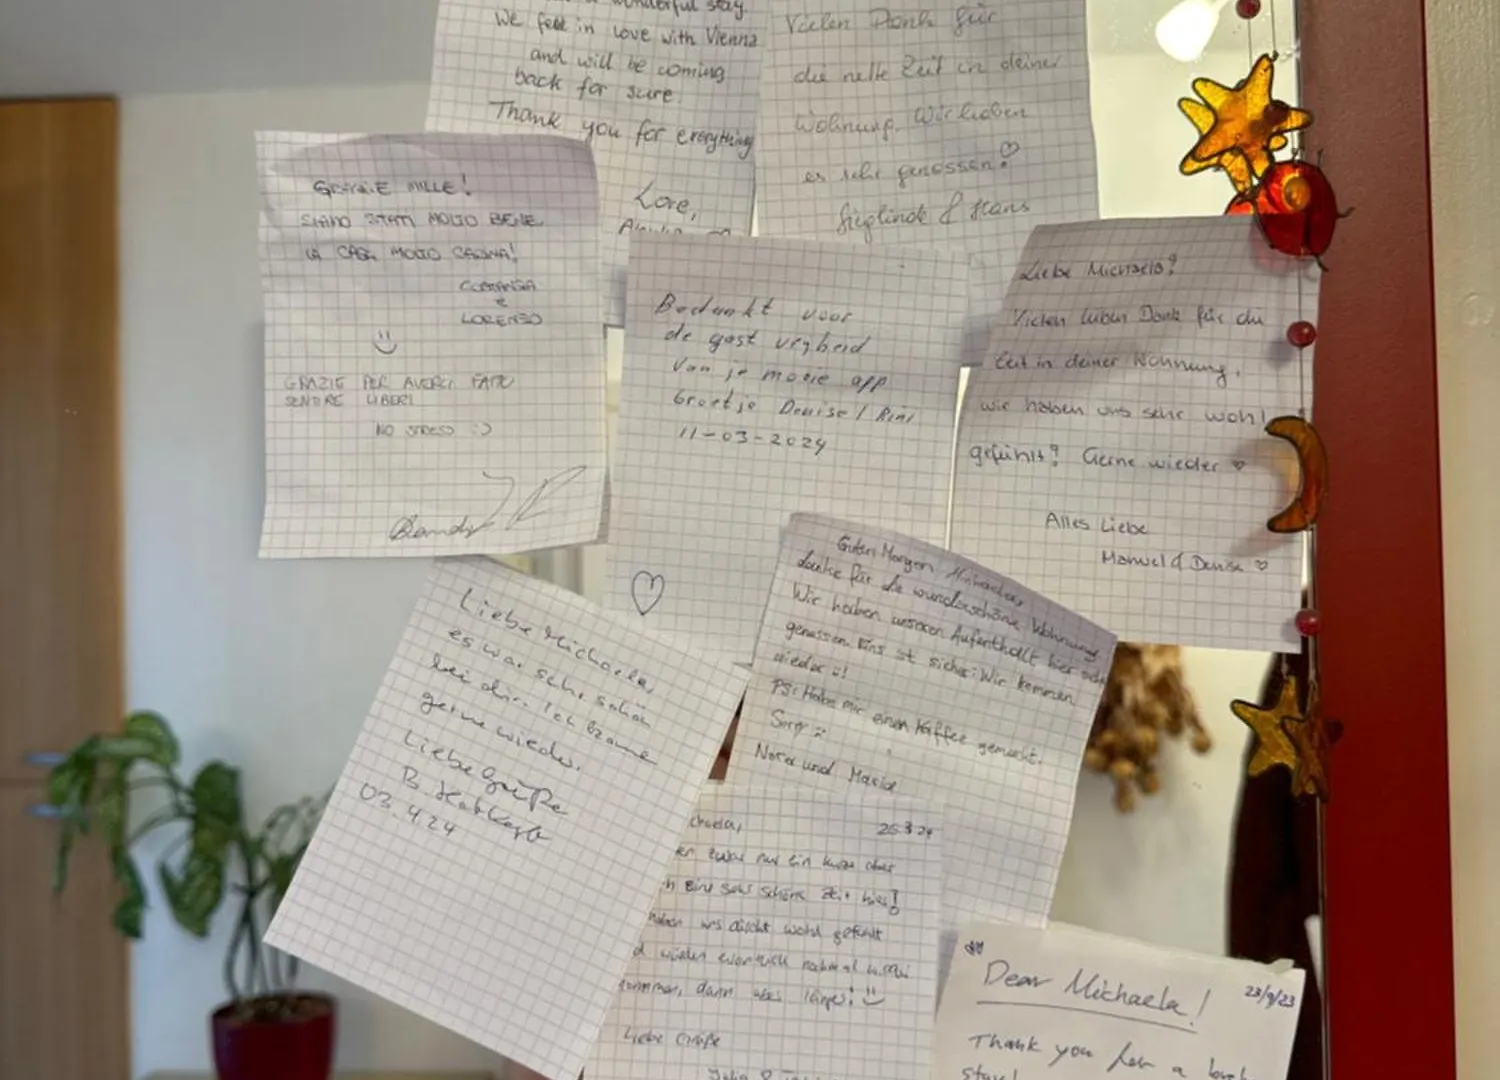 wonderful stay
We feel in love with Vienna
and will be coming
back for sure.
Thank you for everything
Love,
Vielen Dank für
die nette Zeit in deiner
Wohnung. Wir haben
es sehr genossen!
Sieglinde & Hans
GRAZIE MILLE!
SIAMO STATI MOLTO BENE
LA CASA MOLTO CARINA!
COSTANZA
E
LORENZO
GRAZIE PER AVERCI FATTO
SENTIRE LIBERI
NO STRESS :)
Bedankt voor
de gastvryheid
van je mooie app
Groetje Denise / Rini
11-03-2024
Liebe Michaela!
Vielen lieben Dank für die
Zeit in deiner Wohnung,
wir haben uns sehr wohl
gefühlt! Gerne wieder ♡
Alles Liebe
Manuel & Denise ♡
Liebe Michaela,
es war sehr schön
bei dir. Ich komme
gerne wieder.
Liebe Grüße
B.
03.4.24
Guten Morgen
danke für die wunderschöne Wohnung
Wir haben unseren Aufenthalt hier sehr
genossen. Eins ist sicher: Wir kommen
wieder :)!
PS: Habe mir einen Kaffee gemacht.
Sorry :)
Nora und
chaela, 25.3.24
zwar nur ein kurze aber
eine sehr schöne Zeit hier!
haben uns wohl gefühlt
d würden nochmal
kommen, dann aber länger! :)
Liebe Grüße
Dear Michaela! 23/9/23
Thank you for a
stay!